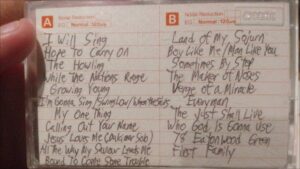 A
Noise Reduction
EQ: Normal 120µs
I Will Sing
Hope To Carry On
The Howling
While The Nations Rage
Growing Young
I'm Gonna Sing/Swing Low/When The Saints
My One Thing
Calling Out Your Name
Jesus Loves Me
All The Way My Saviour Leads Me
Bound To Come Some Trouble
B
Noise Reduction
EQ: Normal 120µs
Land of My Sojourn
Boy Like Me/Man Like You
Sometimes By Step
The Maker of Noses
Verge of a Miracle
Everyman
The Just Shall Live
Who God Is Gonna Use
78 Eatonwood Green
First Family